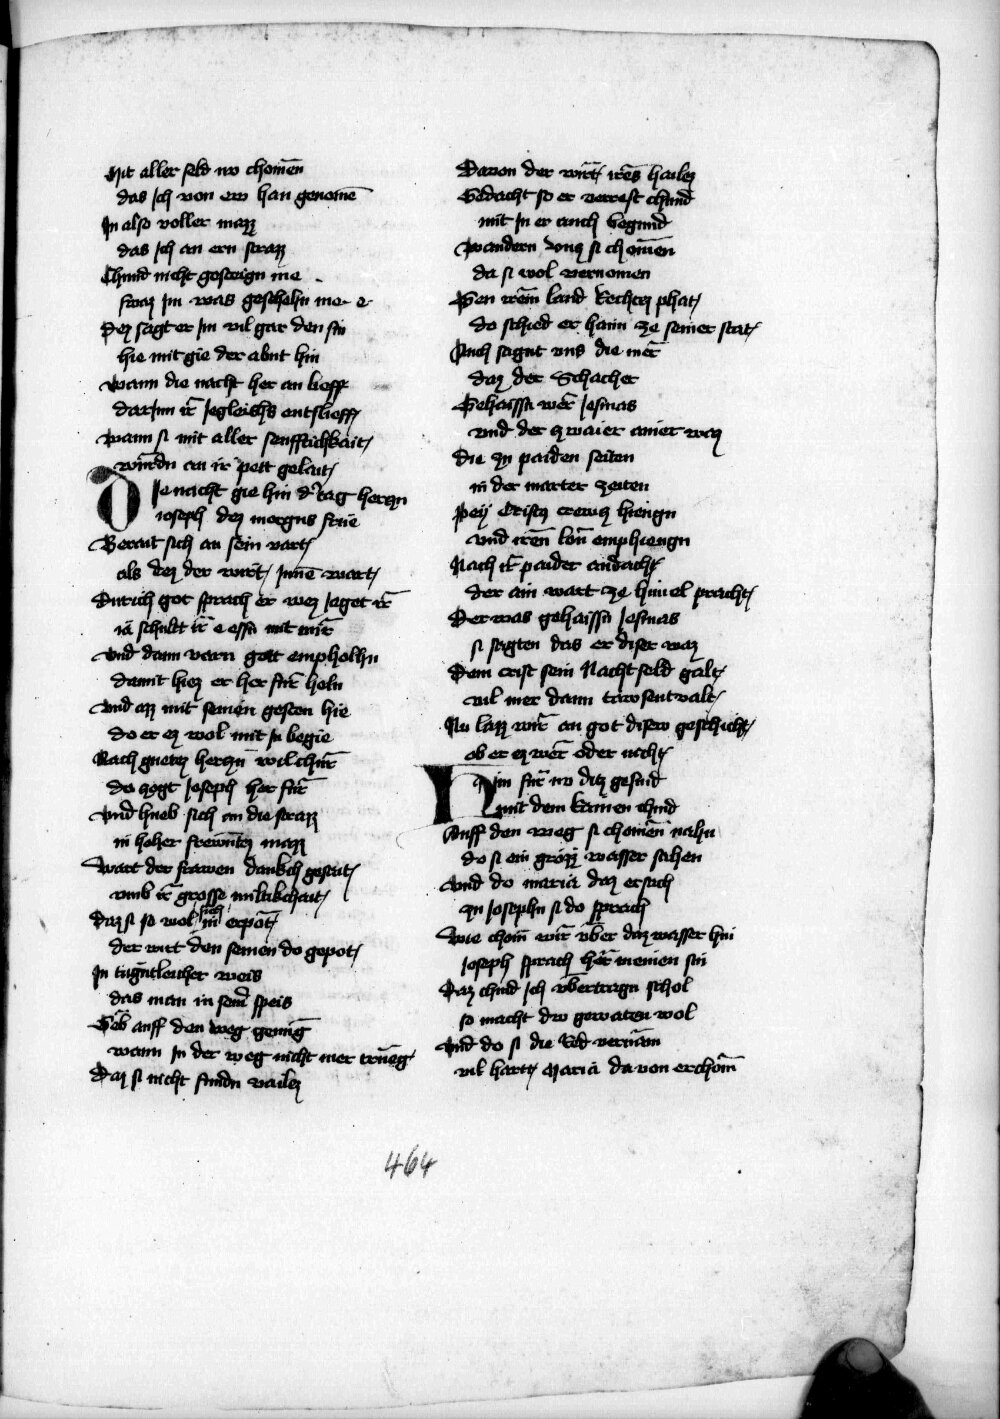 Mit aller seld nv chomen̄
das ich von ew han genomē
Jn also voller mazz
das ich an ern strazz
Chund nicht gesteign me
swaz im was geschehn me e
Dez sagt er im vil gar den sin
hie mit gie der abnt hin
Wann die nacht her an lieff
darinn ir iegleichs entslieff
Wann si mit aller senfftichkait
würdn an ir pett gelait
Die nacht gie hin d' tag herczu
ioseph dez morgns frue
Berait sich an sein vart
als dez der wirt innē wart
Durich got sprach er wez iaget ir
ia schullt ir e essn mit mir
Vnd dann varn gott empholhn
damit hiez er her für holn
Vnd azz mit seinen gesten hie
do er ez wol mit in begie
Nach guetez herczn wilchür
do zogt ioseph her für
Vnd hueb sich an die strazz
in hoher frewntez mazz
Wart der frawen dankch gesait
vmb ir grosse miltikchait
Daz si so wol sich in erpot
der wirt den seinen do gepot
Jn tugntleicher weis
das man in sein speis
Geb auff den weg genug
wann in der weg nicht mer trueg
Daz si nicht fundn vailez
Dauon der wirt irēs hailez
Gedacht so er verrest chund
mit in er auch begund
Wandern vncz si chomen
da si wol vernomen
Gen irem land rechtez phat
do schied er haim ze seiner stat
Auch sagnt vns die mer
daz der Schacher
Gehaissn wer iesmas
vnd der zwaier ainer waz
die zu paiden seiten
in der marter zeiten
Pey Cristz crewcz hiengn
vnd iren lon emphiengn
Nach ir paider andacht
der ain wart ze himel pracht
Der was gehaissn iesmas
si sagten das er diser waz
Dem crist sein Nachtseld galt
vil mer dann tawsentvalt
Nu lazz wir an got disew geschicht
ob er ez wer oder nicht
Hin für nv ditz gesind
mit dem klainen chind
Auff den weg si chomen nahn
do si ein grozz wasser sahen
Vnd do maria daz ersach
zu iosephn si do sprach
Wie chom wir vber daz wasser hin
ioseph sprach hör meinen sin
Daz chind ich vbertragn schol
so macht dw gewaten wol
Vnd do si die red vernam
vil hartt Maria da von erchom
464